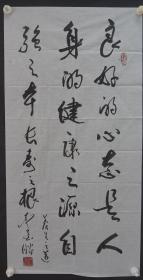 良好的心态是人
身的健康之源自
强之本长寿之根
养生之道